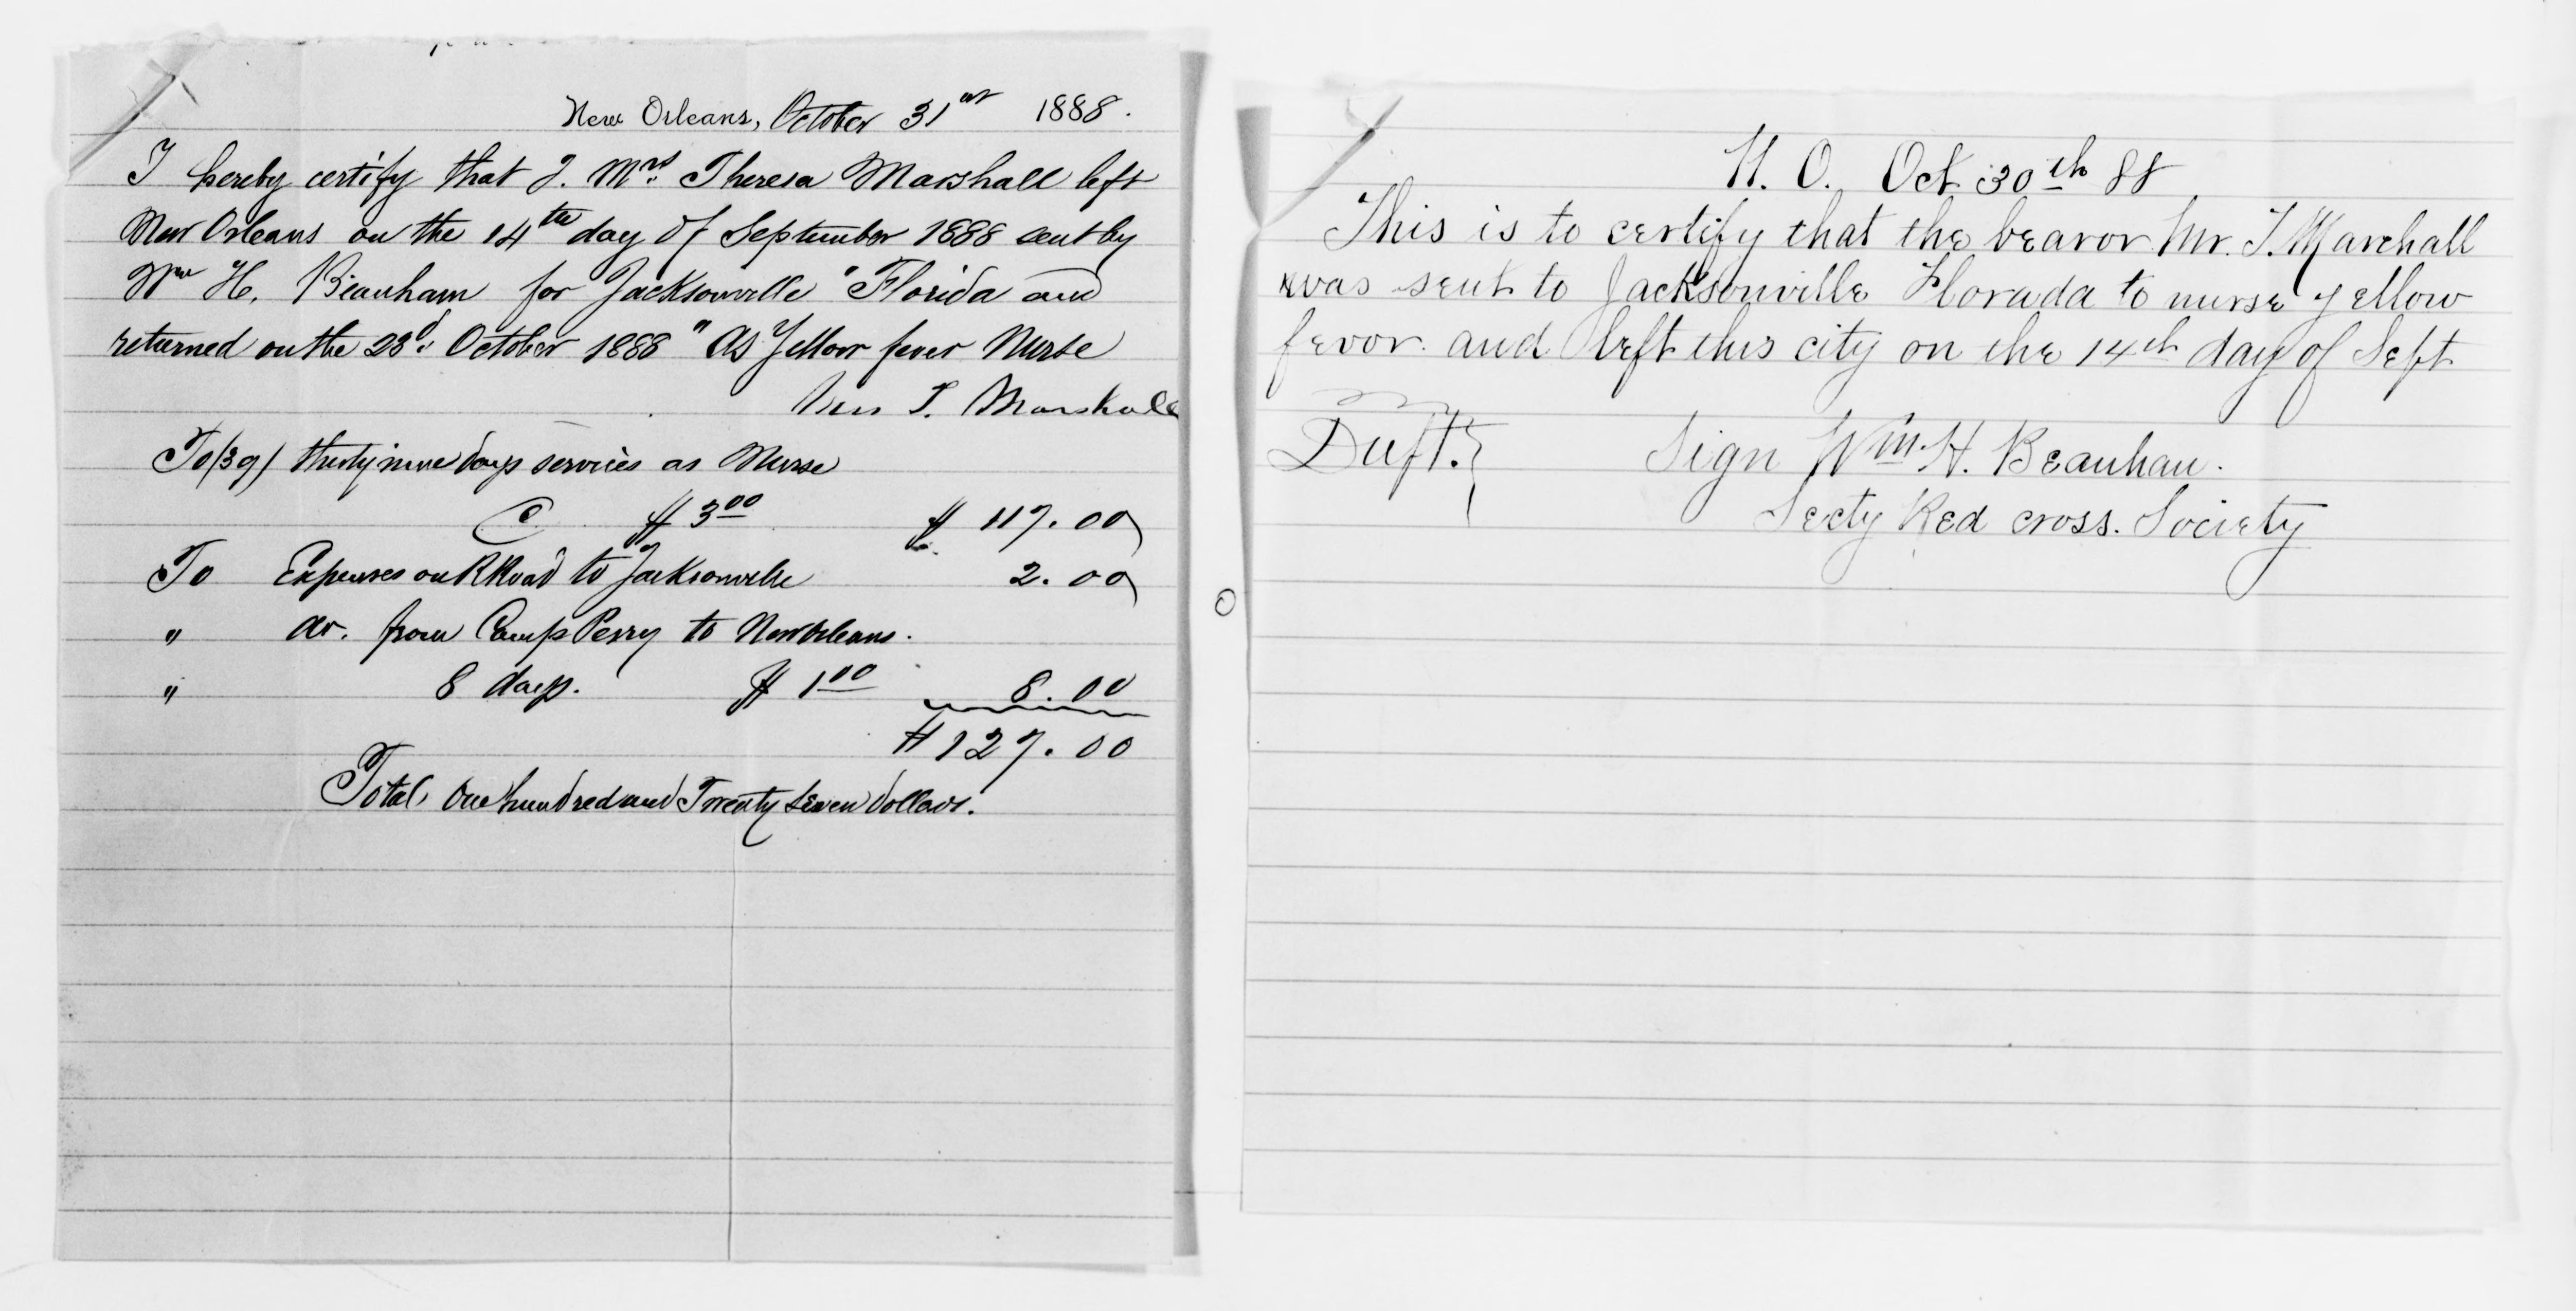 New Orleans, October 31st 1888.
I hereby certify that I. Mrs. Theresa Marshall left
New Orleans on the 14th day of September 1888 sent by
Wm H. Beanham for Jacksonville "Florida and
returned on the 23d. October 1888" As Yellow fever Nurse
Mrs T. Marshall
To (39) thirty nine days services as Nurse
@ $ 3.00 $ 117.00
To Expenses on RRoad to Jacksonville 2.00
" do. from Camp Perry to New Orleans.
" 8 days. $ 1.00 8.00
$ 127.00
Total, One hundred and Twenty seven dollars.
N. O. Oct 30th 88
This is to certify that the bearor Mr. T. Marchall
was sent to Jacksonville Florada to nurse yellow
fevor. and left this city on the 14th day of Seft
Duft. Sign Wm. H. Beanhan.
Secty Red cross. Society